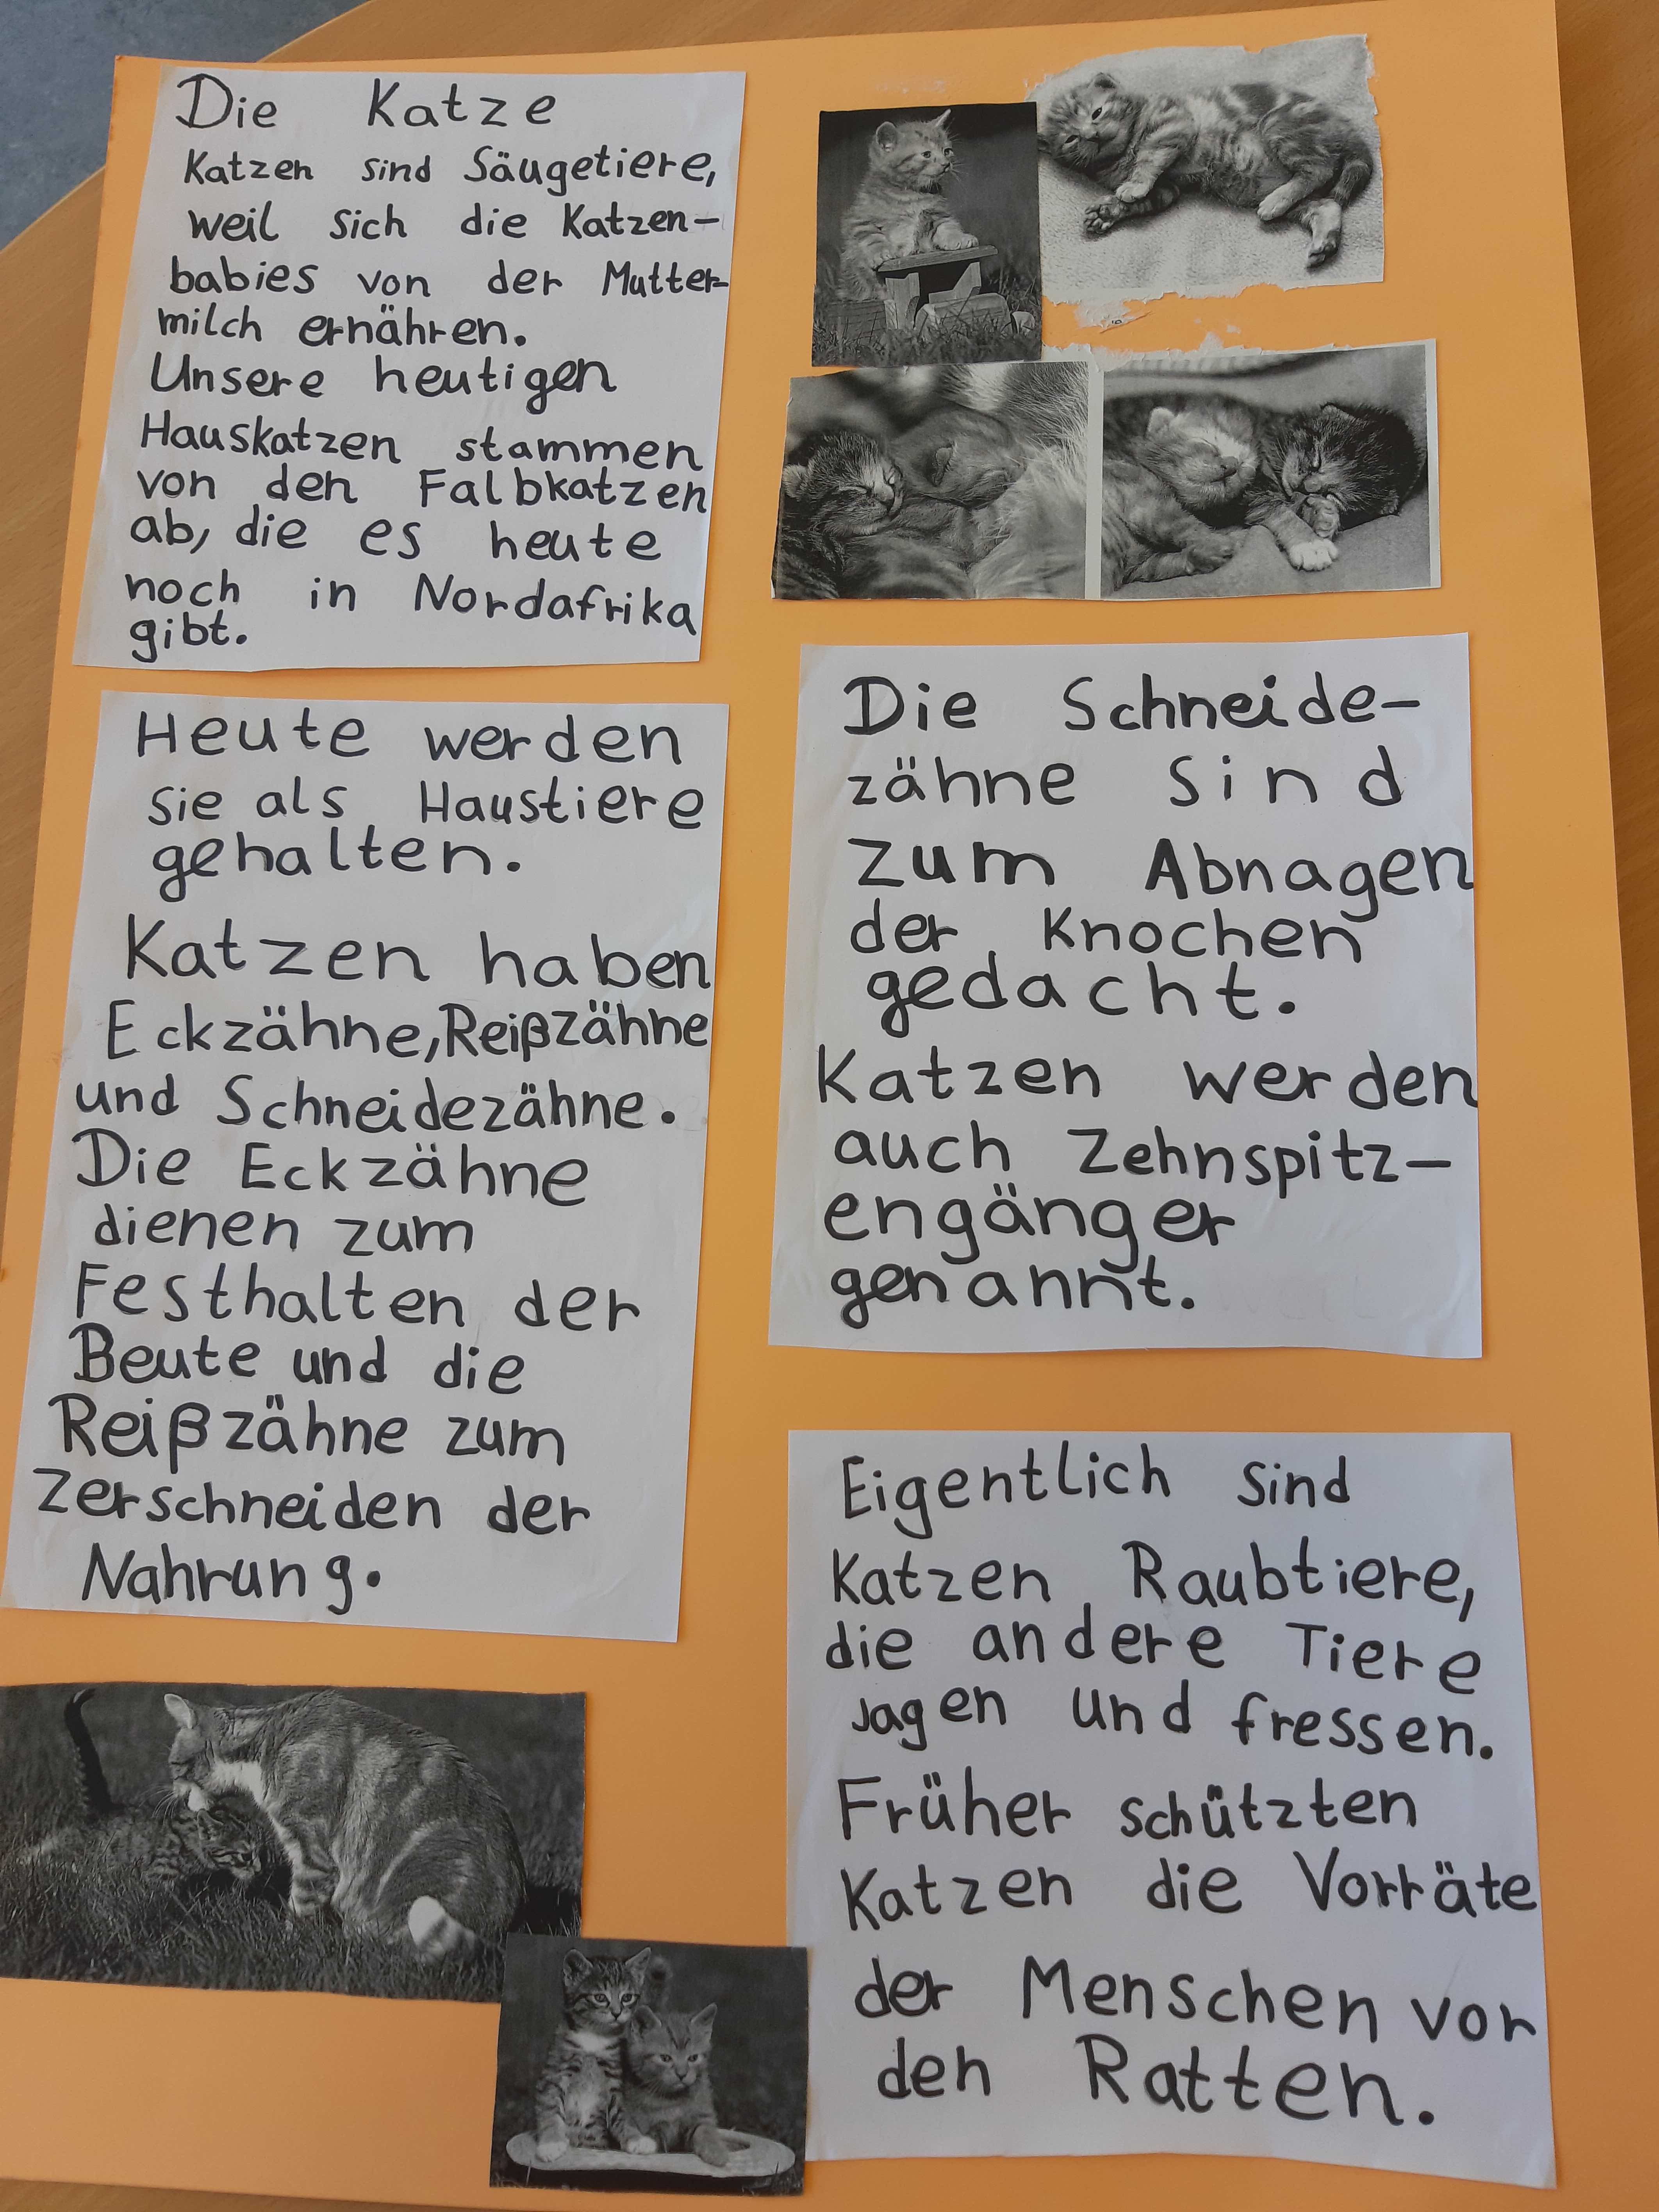 Die Katze
Katzen sind Säugetiere,
weil sich die Katzen-
babies von der Mutter-
milch ernähren.
Unsere heutigen
Hauskatzen stammen
von den Falbkatzen
ab, die es heute
noch in Nordafrika
gibt.
Heute werden
sie als Haustiere
gehalten.
Katzen haben
Eckzähne, Reißzähne
und Schneidezähne.
Die Eckzähne
dienen zum
Festhalten der
Beute und die
Reißzähne zum
Zerschneiden der
Nahrung.
Die Schneide-
zähne sind
zum Abnagen
der Knochen
gedacht.
Katzen werden
auch Zehnspitz-
engänger
genannt.
Eigentlich sind
Katzen Raubtiere,
die andere Tiere
jagen und fressen.
Früher schützten
Katzen die Vorräte
der Menschen vor
den Ratten.